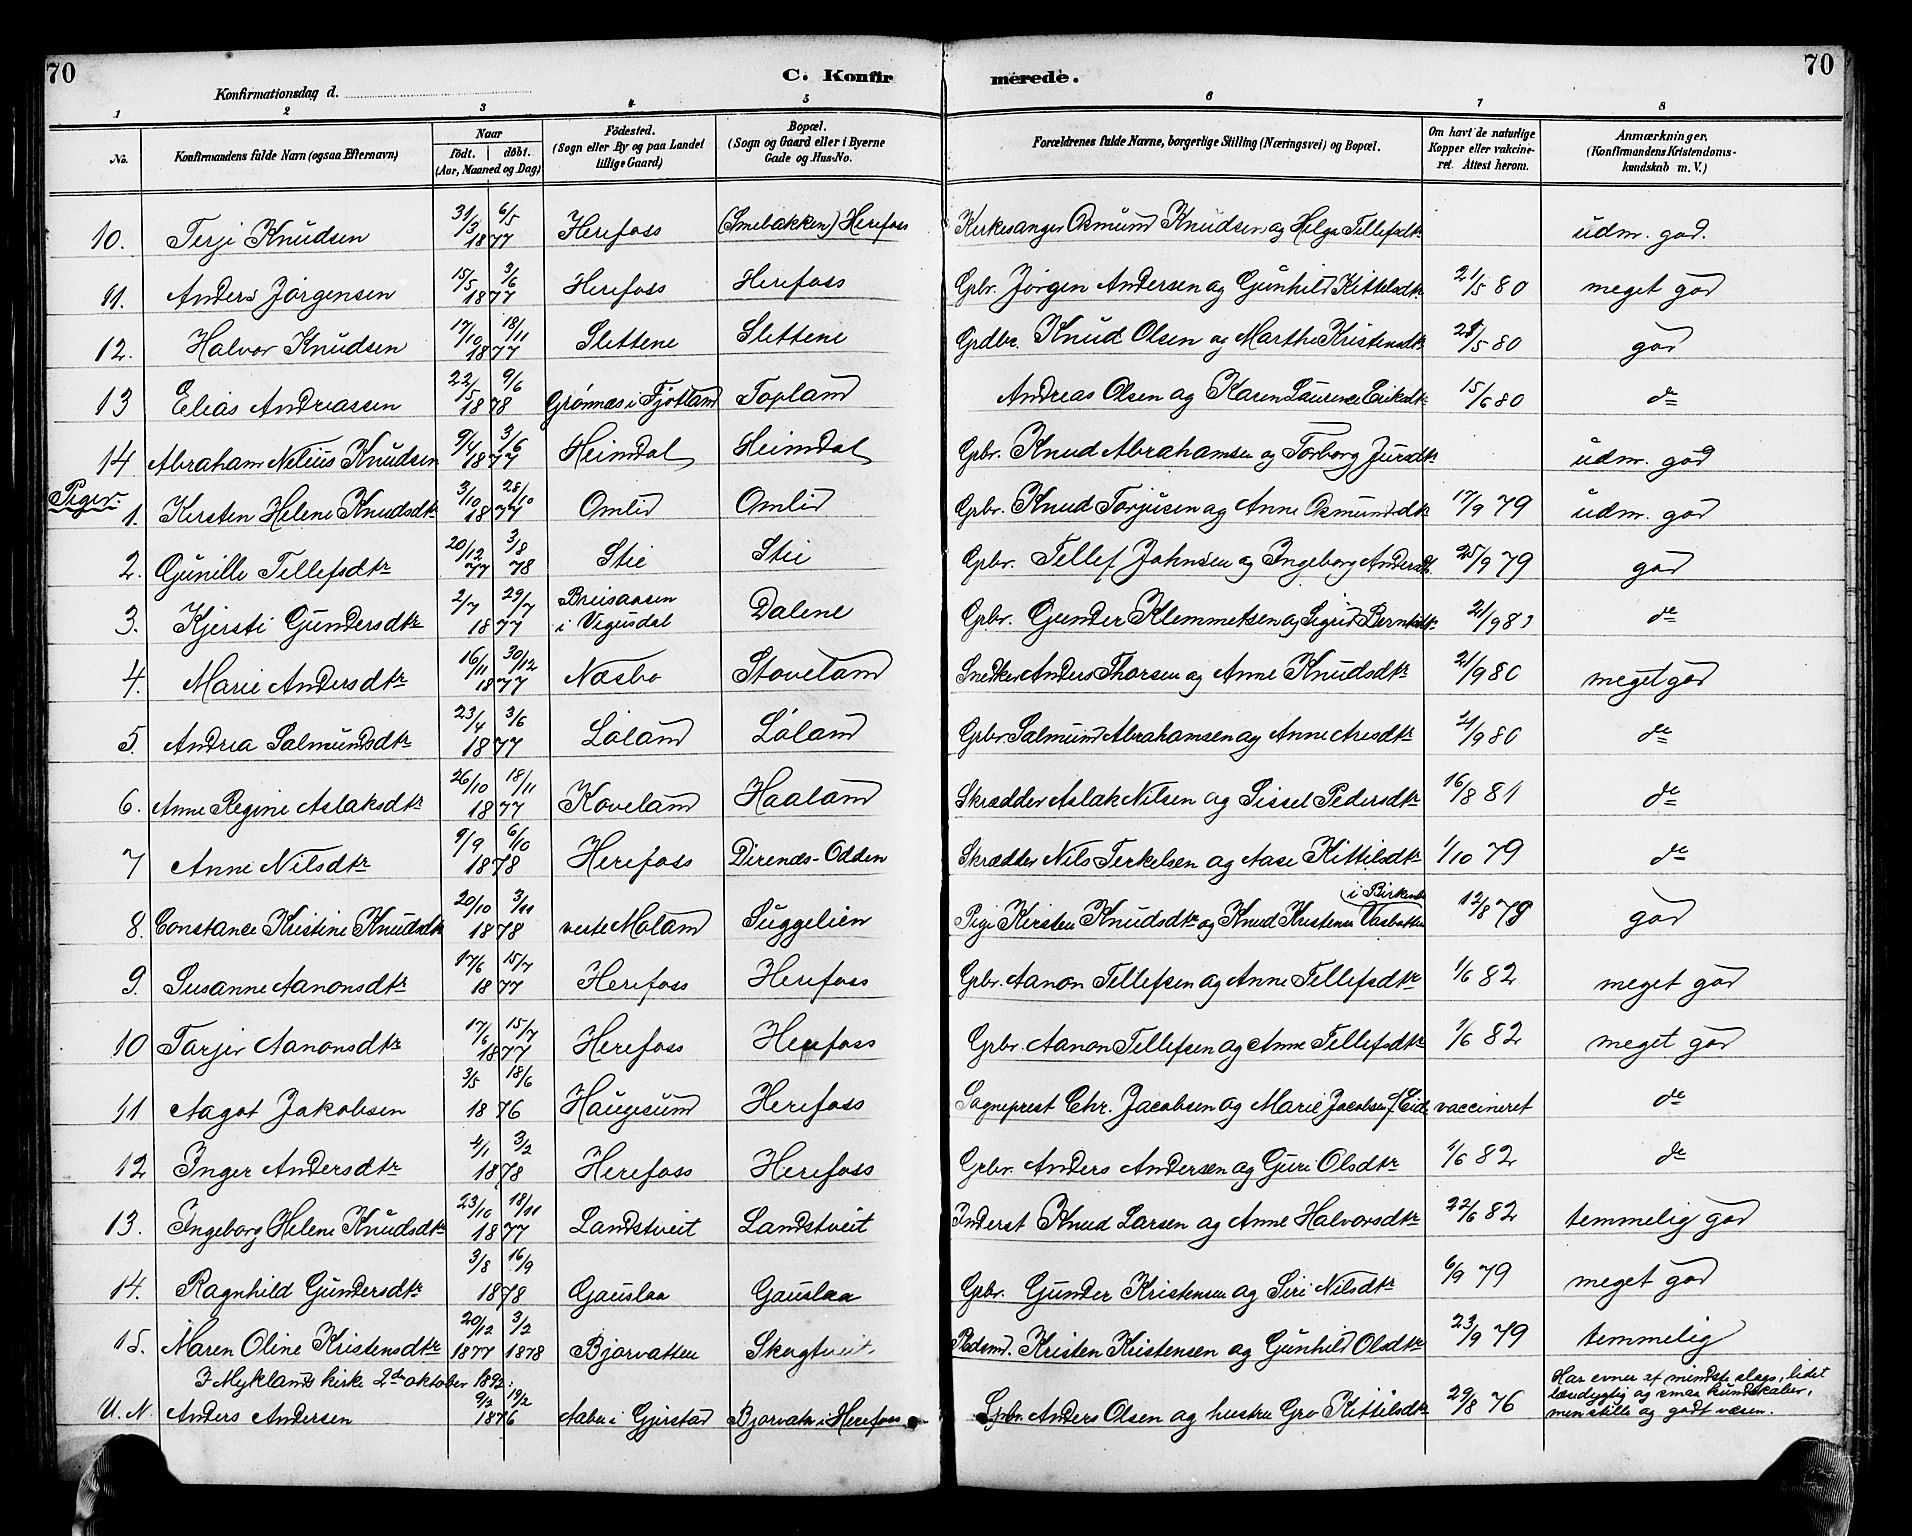 70
C. Konfirmerede.
70
Konfirmationsdag d.
1 2 3 4 5 6 7 8
No. Konfirmandens fulde Navn (ogsaa Efternavn) Naar födt. döbt. (Aar, Maaned og Dag) Födested. (Sogn eller By og paa Landet tillige Gaard) Bopæl. (Sogn og Gaard eller i Byerne Gade og Hus-No. Forældrenes fulde Navne, borgerlige Stilling (Næringsvei) og Bopæl. Om havt de naturlige Kopper eller vakcineret. Attest herom. Anmærkninger, (Konfirmandens Kristendomskundskab m. V.)
10. Terje Knudsen 31/3 6/5 1877 Herefoss (Smebakken) Herefoss Kirkesanger Osmund Knudsen og Helga Tellefsdtr udm. god.
11. Anders Jörgensen 15/5 3/6 1877 Herefoss Herefoss Grbr. Jörgen Andersen og Gunhild Kittelsdtr 21/5 80 meget god
12. Halvor Knudsen 17/10 18/11 1877 Slettene Slettene Grdbr. Knud Olsen og Marthe Kristensdtr 21/5 80 god
13 Elias Andreassen 22/5 9/6 1878 Grönnæs i Fjotland Topland Andreas Olsen og Karen Laurence Eriksdtr 15/6 80 do
14 Abraham Nelius Knudsen 9/4 3/6 1877 Heimdal Heimdal Grbr. Knud Abrahamsen og Torborg Jursdtr udm. god
Piger.
1. Kersten Helene Knudsdtr 3/10 28/10 1877 Omlid Omlid Grbr. Knud Torjusen og Anne Osmundsdtr 17/9 79 udm. god
2. Gunille Tellefsdtr 20/12 77 3/8 78 Stie Stie Grbr. Tellef Johnsen og Ingeborg Andersdt. 25/9 79 god
3. Kjersti Gundersdtr 2/7 29/7 1877 Breisaasen i Vegusdal Dalene Grbr. Gunder Klemmetsen og Sigrid Berntsdtr 21/9 83 do
4. Marie Andersdtr 16/11 30/12 1877 Næsbo Stoveland Snedker Anders Thorsen og Anne Knudsdtr 21/9 80 meget god
5. Andrea Salmundsdtr 23/4 3/6 1877 Löland Löland Grbr. Salmund Abrahamsen og Anne Aresdtr 21/9 80 do
6. Anne Regine Aslaksdtr 26/10 18/11 1877 Koveland Haaland Skrædder Aslak Nilsen og Sissel Pedersdtr 16/8 81 do
7 Anne Nilsdtr 9/9 6/10 1878 Herefoss Dirends-Odden Skrædder Nils Terkelsen og Aase Kittilsdtr 1/10 79 do
8. Constance Kristine Knudsdtr 20/10 3/11 1878 vestre Moland Suggelien Pige Kirsten Knudsdtr og Knud Kristensen Vasbotten i Birkenes 12/8 79 god
9. Susanne Aanonsdtr 17/6 15/7 1877 Herefoss Herefoss Grbr. Aanon Tellefsen og Anne Tellefsdtr 1/6 82 meget god
10 Torjer Aanonsdtr 17/6 15/7 1877 Herefoss Herefoss Grbr. Aanon Tellefsen og Anne Tellefsdtr 1/6 82 meget god
11 Aagot Jakobsen 3/5 18/6 1876 Haugesund Herefoss Sogneprest Chr. Jacobsen og Marie Jacobsen f Eide vaccineret do
12 Inger Andersdtr 4/1 3/2 1878 Herefoss Herefoss Grbr. Anders Andersen og Guri Olsdtr 1/6 82 do
13. Ingeborg Helene Knudsdtr 23/10 18/11 1877 Landstveit Landstveit Inderst Knud Larsen og Anne Halvorsdtr 22/6 82 temmelig god
14. Ragnhild Gundersdtr 3/8 16/9 1878 Gauslaa Gauslaa Grbr. Gunder Kristensen og Siri Nilsdtr 6/9 79 meget god
15. Maren Oline Kristensdtr 20/12 1877 3/2 1878 Bjorvatten Skogtveit Kristen Kristensen og Gunhild Olsdtr 23/9 79 temmelig
I Myklands kirke 2den oktober 1892:
U. N. Anders Andersen 9/2 19/2 1876 Aabu i Gjerstad Bjorvatn i Herefoss Grbr. Anders Olsen og hustru Gro Kittilsdtr 29/8 76 Har evner af mindste slags, lidet læsedygtig og smaa kundskaber, men stille og godt væsen.